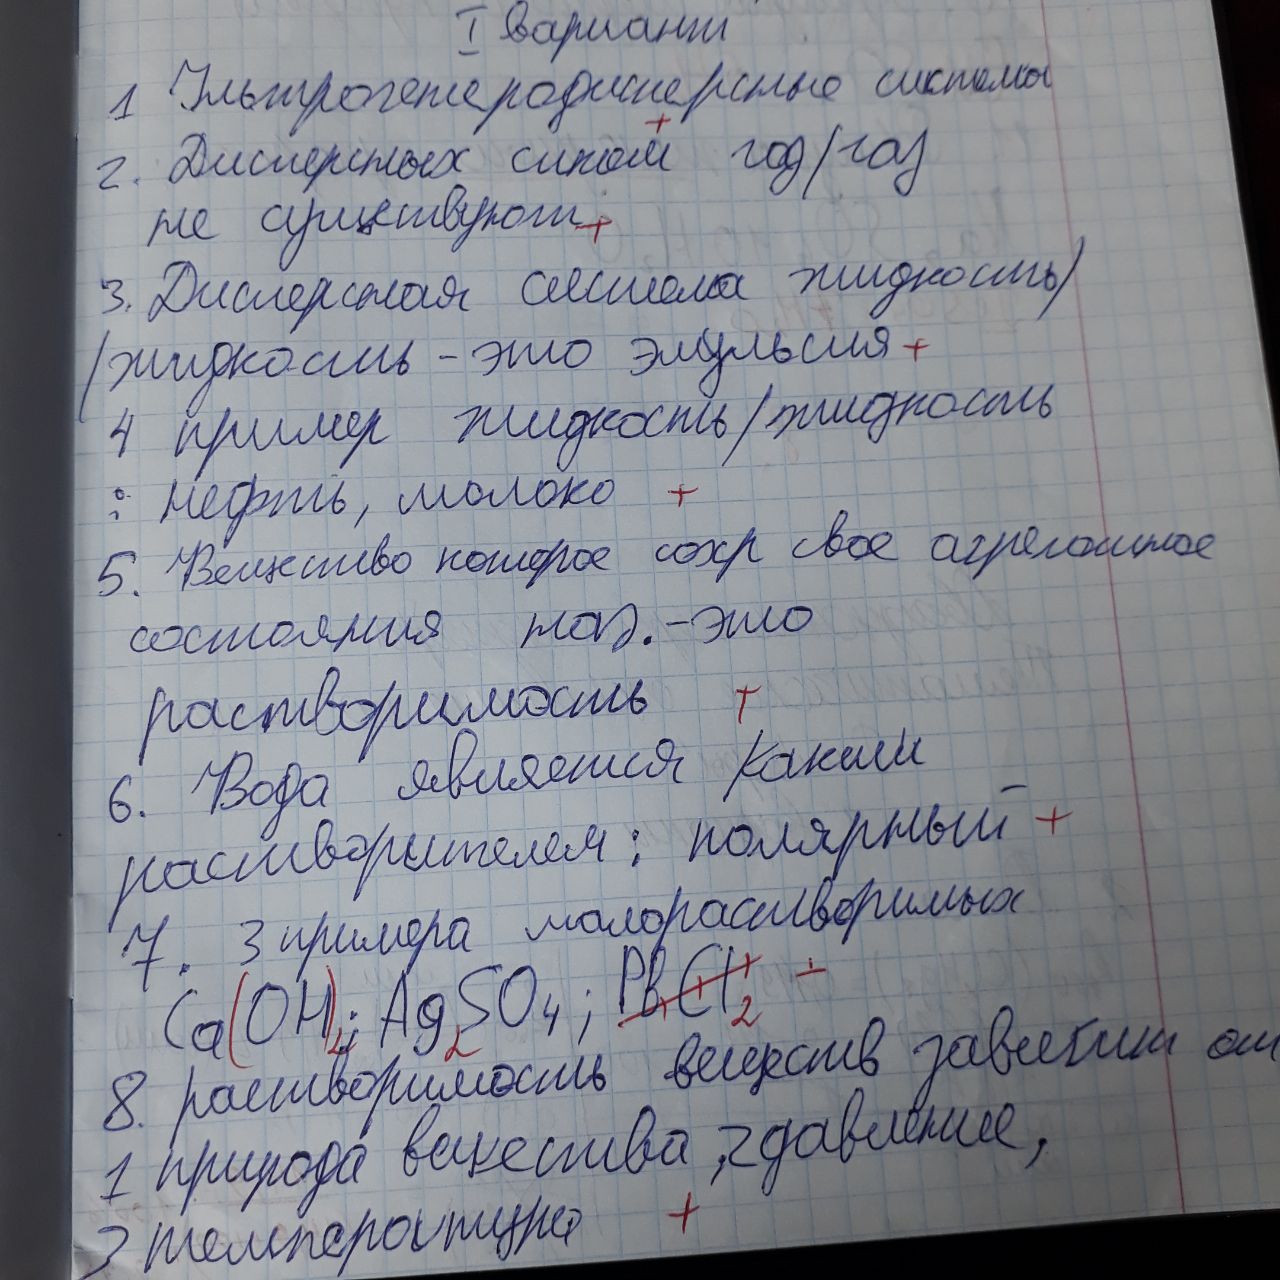 I вариант
1 Ультрогетеродисперсные системы
2. Дисперсных систем год/газ
не существуют +
3. Дисперсная система жидкость/
/жидкость - это эмульсия +
4 пример жидкость/жидкость
: нефть, молоко +
5. Вещество которое сохр свое агрегатное
состояния наз. - это
растворимость +
6. Вода является каким
растворителем: полярный +
7. 3 примера малорастворимых
Ca(OH)2; Ag2SO4; PbCl2 ±
8. растворимость веществ зависит от
1 природа вещества, 2 давление,
3 температура +